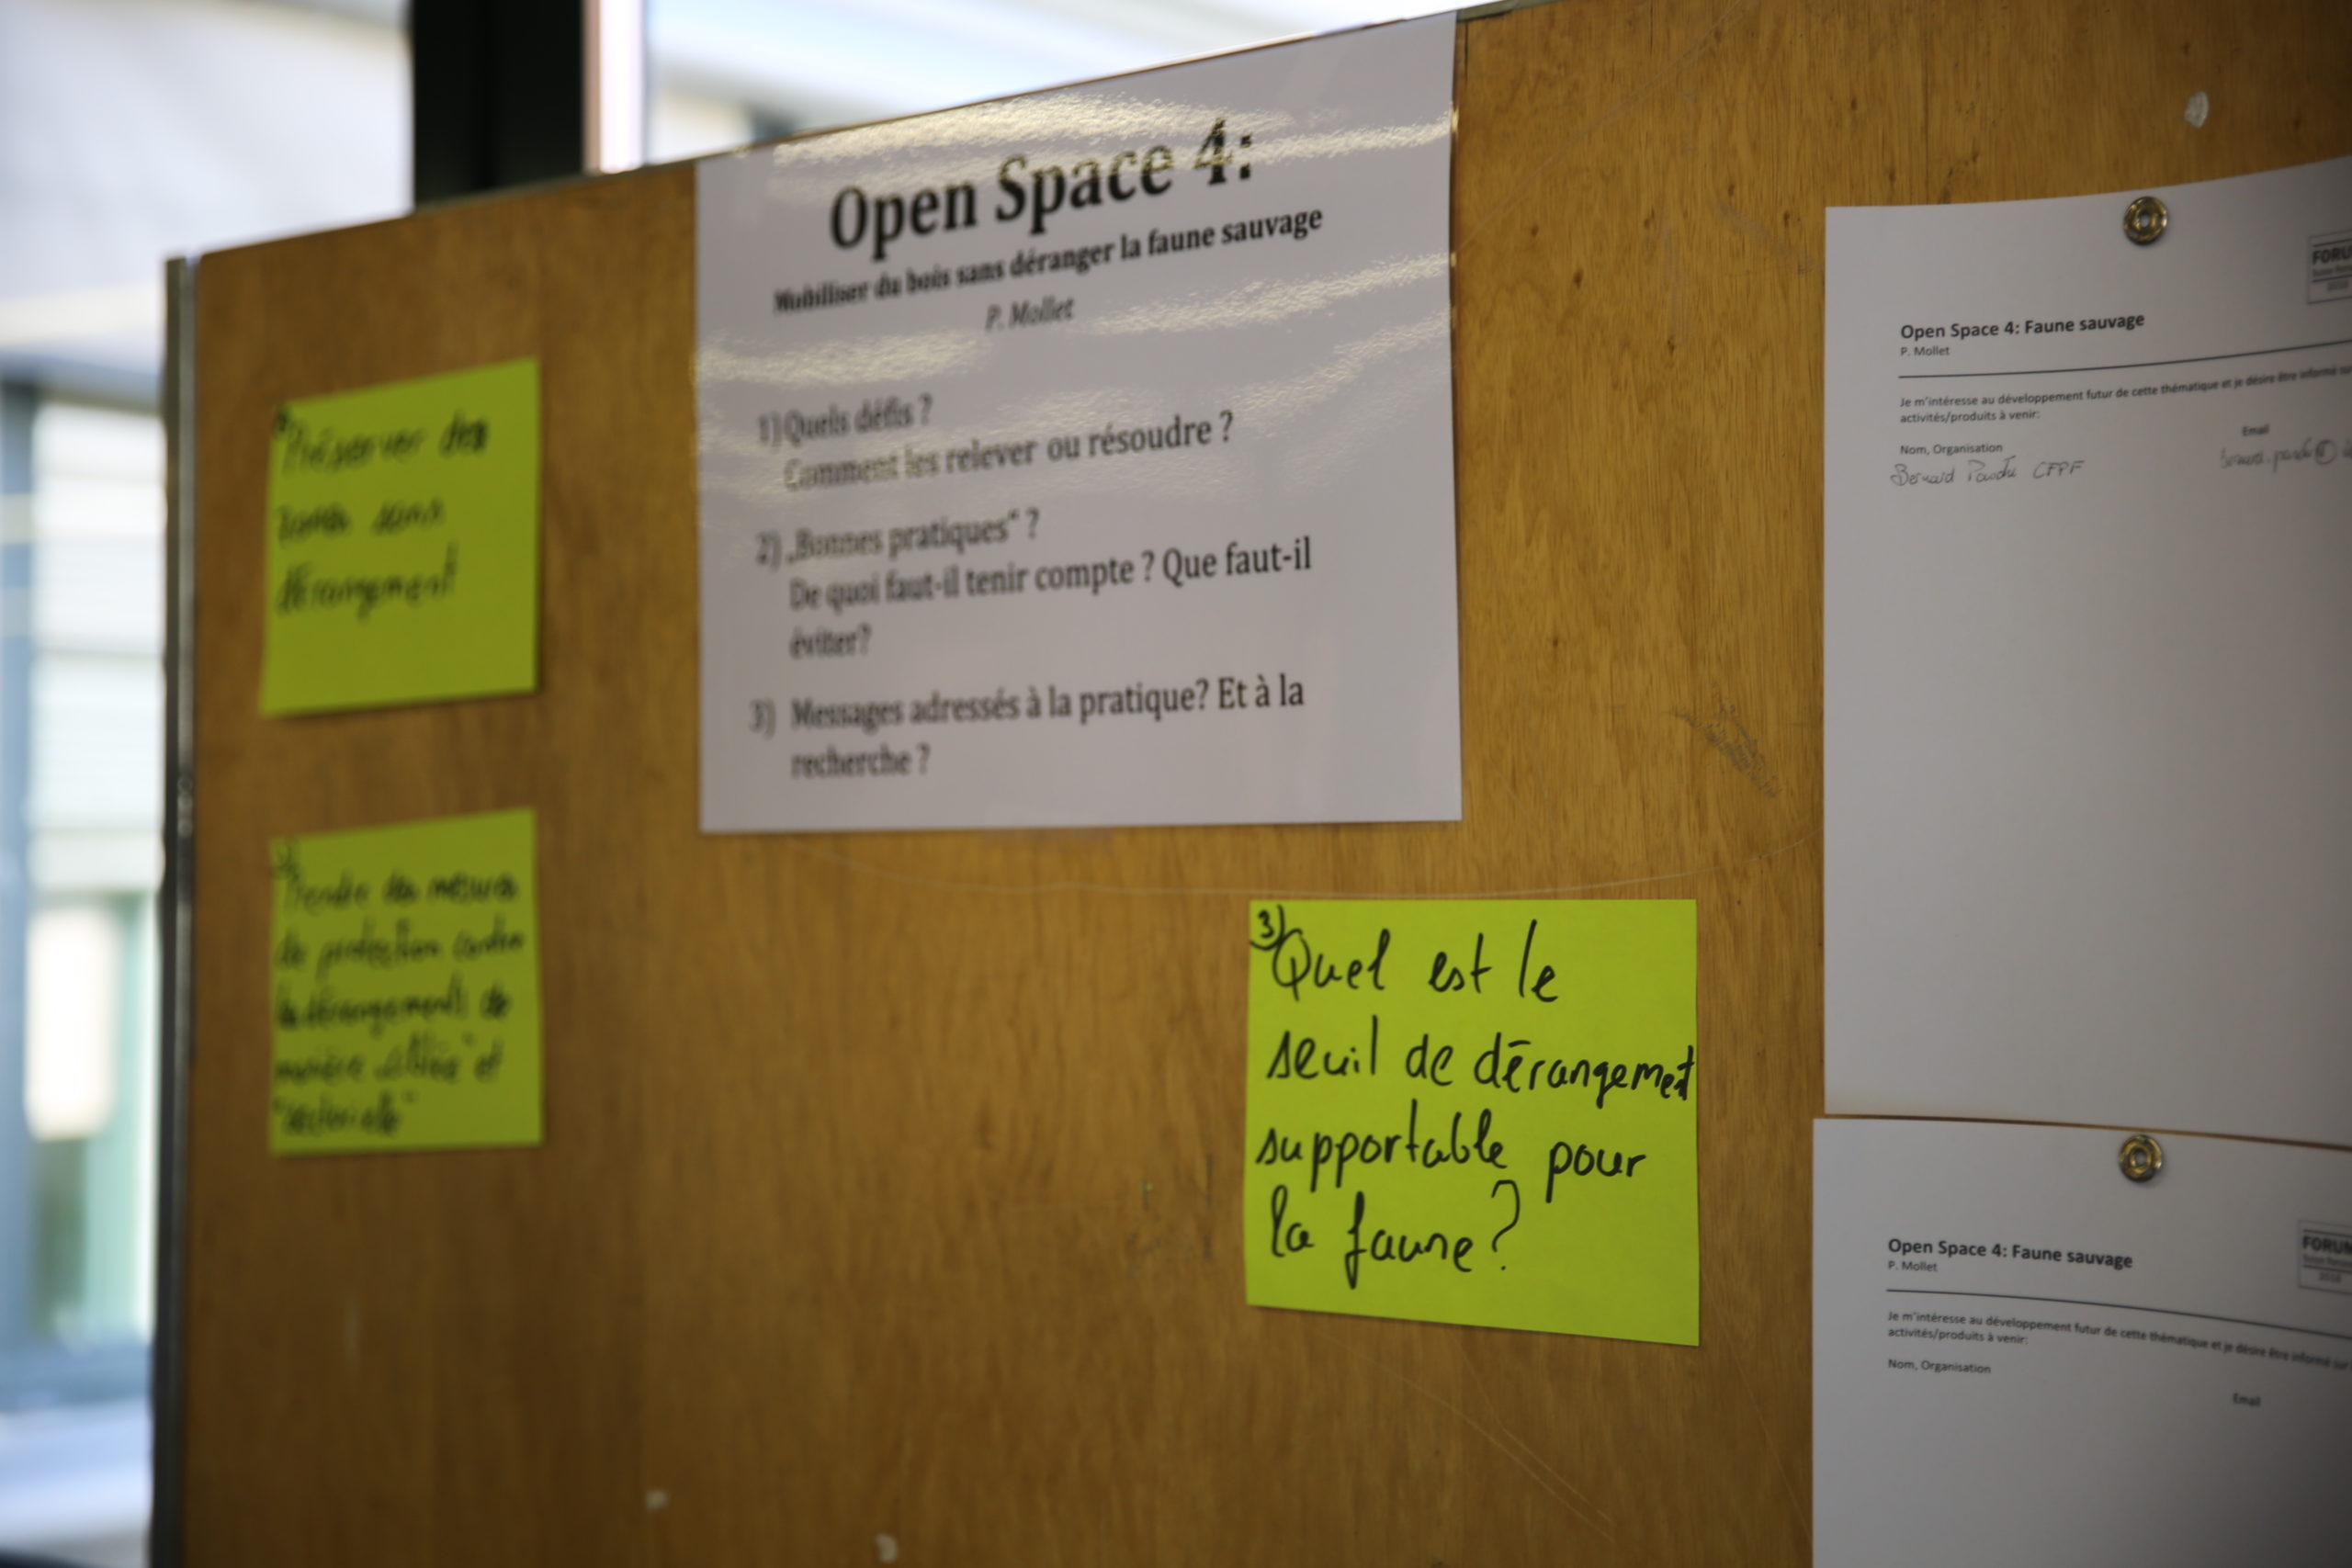 Open Space 4:
Mobiliser du bois sans déranger la faune sauvage
P. Mollet
1) Quels défis ?
Comment les relever ou résoudre ?
2) „Bonnes pratiques“ ?
De quoi faut-il tenir compte ? Que faut-il
éviter?
3) Messages adressés à la pratique? Et à la
recherche ?
Préserver des
zones sans
dérangement
Prendre des mesures
de protection contre
dérangements de
manière et
3) Quel est le
seuil de dérangement
supportable pour
la faune?
Open Space 4: Faune sauvage
P. Mollet
Je m'intéresse au développement futur de cette thématique et je désire être informé
activités/produits à venir:
Nom, Organisation
Email
Bernard CFPF
Open Space 4: Faune sauvage
P. Mollet
Je m'intéresse au développement futur de cette thématique et je désire être informé sur
activités/produits à venir:
Nom, Organisation
Email